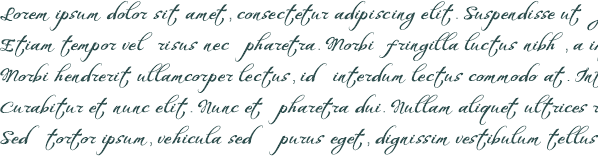 Lorem ipsum dolor sit amet, consectetur adipiscing elit. Suspendisse ut
Etiam tempor vel risus nec pharetra. Morbi fringilla luctus nibh, a in
Morbi hendrerit ullamcorper lectus, id interdum lectus commodo at. Int
Curabitur et nunc elit. Nunc et pharetra dui. Nullam aliquet ultrices
Sed tortor ipsum, vehicula sed purus eget, dignissim vestibulum tellus